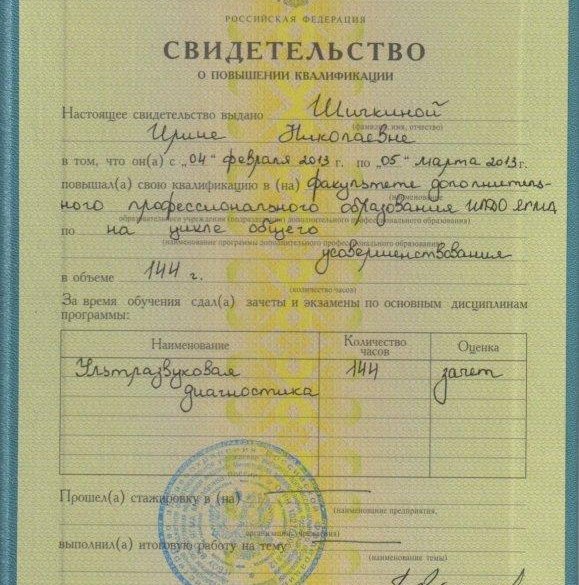 РОССИЙСКАЯ ФЕДЕРАЦИЯ
СВИДЕТЕЛЬСТВО
О ПОВЫШЕНИИ КВАЛИФИКАЦИИ
Настоящее свидетельство выдано Шичкиной
(фамилия, имя, отчество)
Ирине Николаевне
в том, что он(а) с „04“ февраля 2013 г. по „05“ марта 2013 г.
повышал(а) свою квалификацию в (на) факультете дополнитель-
(наименование
ного профессионального образования ИПДО ЯГМА
образовательного учреждения (подразделения) дополнительного профессионального образования)
по на цикле общего
(наименование программы дополнительного профессионального образования)
усовершенствования
в объеме 144 г.
(количество часов)
За время обучения сдал(а) зачеты и экзамены по основным дисциплинам
программы:
Наименование Количество часов Оценка
Ультразвуковая 144 зачет
диагностика
Прошел(а) стажировку в (на)
(наименование предприятия,
организации, учреждения)
выполнил(а) итоговую работу на тему
(наименование темы)